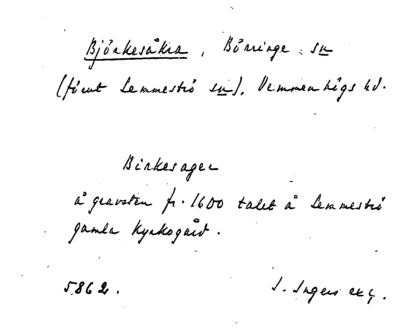 Björkesåkra, Börringe sn
(förut Lemmeströ sn), Vemmenhögs hd.
Birkesager
å gravsten fr. 1600 talet å Lemmeströ
gamla kyrkogård.
5862. I. Ingers